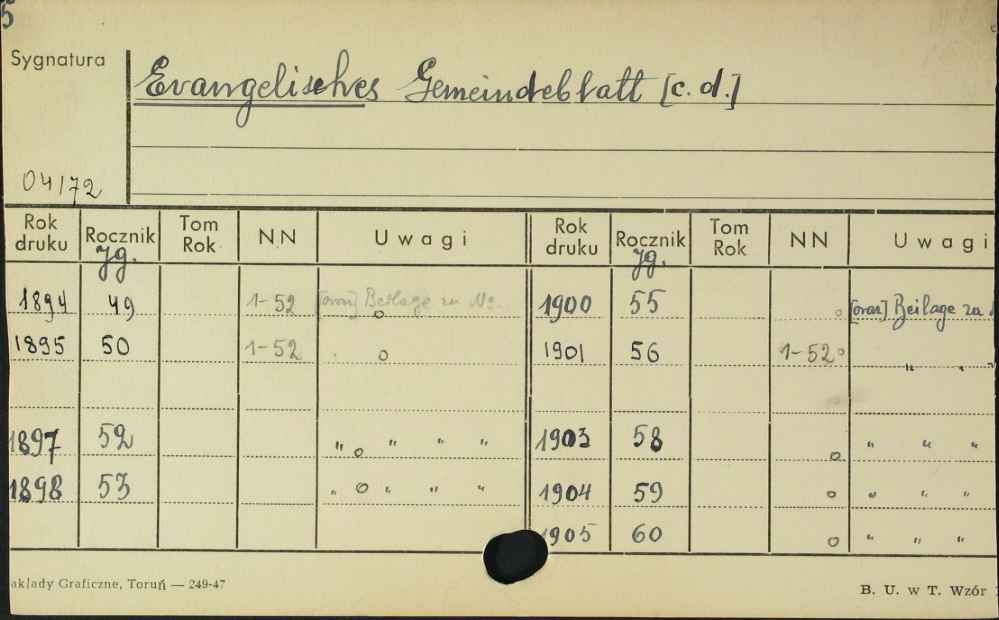 5
Sygnatura
Evangelisches Gemeindeblatt [c.d.]
04/72
Rok druku Rocznik Jg. Tom Rok NN Uwagi Rok druku Rocznik Jg. Tom Rok NN Uwagi
1894 49 1-52 [oraz] Beilage zu No. o 1900 55 o [oraz] Beilage zu
1895 50 1-52 o 1901 56 1-52 o " "
1897 52 " o " " " 1903 58 o " " "
1898 53 " o " " " 1904 59 o " " "
1905 60 o " " "
akłady Graficzne, Toruń — 249-47 B. U. w T. Wzór